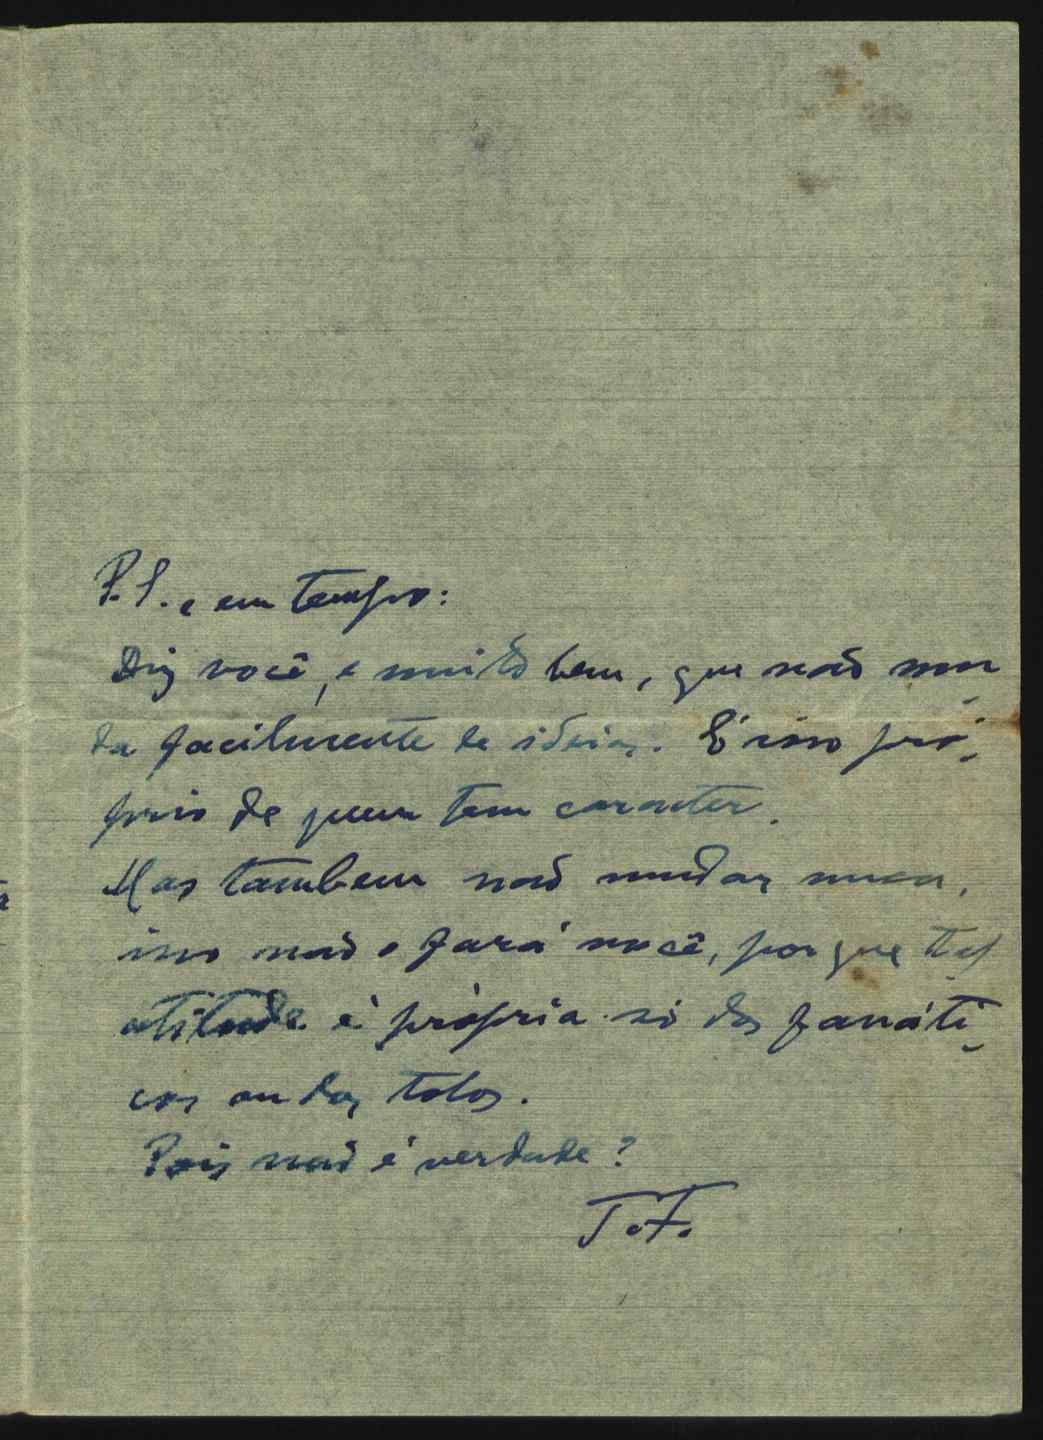 P.S. e em tempo:
Diz você, e muito bem, que não mu-
da facilmente de ideias. É isso pró-
prio de quem tem caracter.
Mas tambem não mudar nunca,
isso não o fará você, porque tal
atitude é própria só dos fanáti-
cos ou dos tolos.
Pois não é verdade?
T.F.